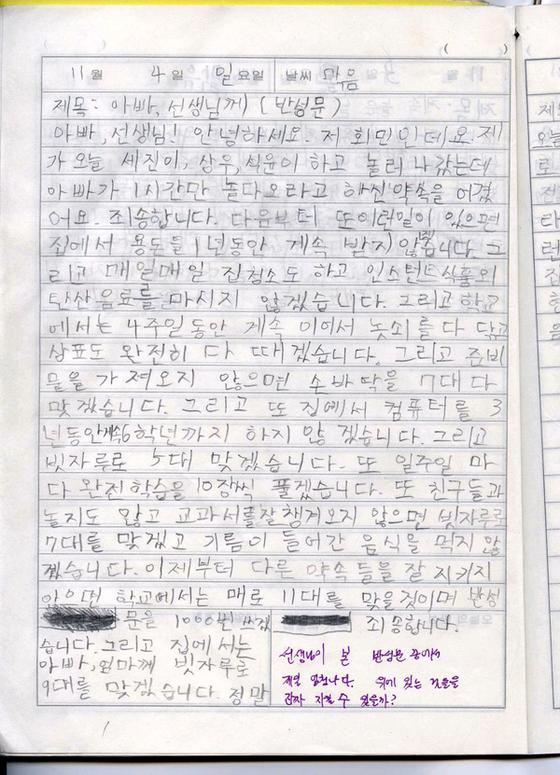 11월 4일 일요일 날씨 맑음
제목: 아빠, 선생님께 (반성문)
아빠, 선생님! 안녕하세요. 저 희민인데요. 제
가 오늘 세진이, 상우, 식윤이 하고 놀러 나갔는데
아빠가 1시간만 놀다오라고 하신 약속을 어겼
어요. 죄송합니다. 다음부터 또 이런일이 있으면
집에서 용돈을 1년동안 계속 받지 않겠습니다. 그
리고 매일매일 집청소도 하고 인스턴트식품외
탄산음료를 마시지 않겠습니다. 그리고 학교
에서는 4주일동안 계속 이어서 놋쇠를 다 닦고
상표도 완전히 다 떼겠습니다. 그리고 준비
물을 가져오지 않으면 손바닥을 7대 다
맞겠습니다. 그리고 또 집에서 컴퓨터를 3
년동안계속6학년까지 하지 않겠습니다. 그리고
빗자루로 5대 맞겠습니다. 또 일주일 마
다 완전학습을 10장씩 풀겠습니다. 또 친구들과
놀지도 않고 교과서를잘챙겨오지 않으면 빗자루로
7대를 맞겠고 기름이 들어간 음식을 먹지 않
겠습니다. 이제부터 다른 약속들을 잘 지키지
않으면 학교에서는 매로 11대를 맞을것이며 반성
문을 100번 쓰겠
습니다. 그리고 집에서는
아빠, 엄마께 빗자루로
9대를 맞겠습니다. 정말
죄송합니다.
선생님이 본 반성문 중에서
제일 위에 있는 것들을
과자 지킬 수 있을까?